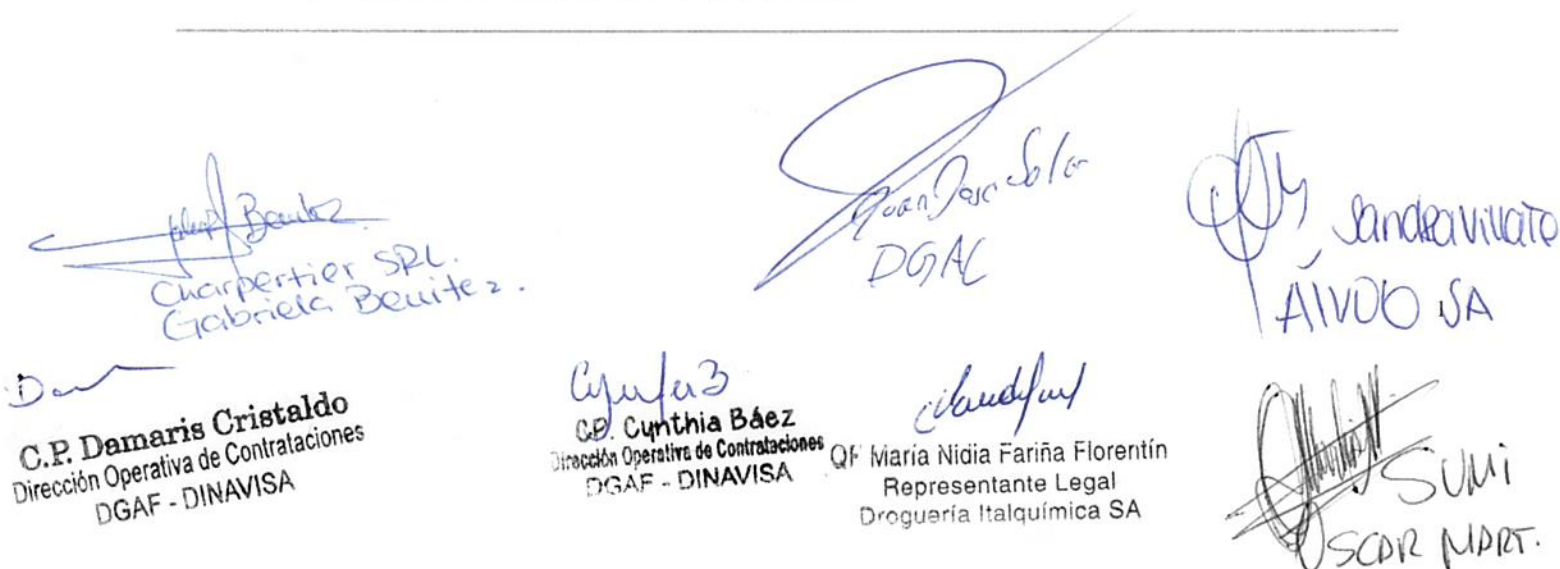 Benitez
Charpertier SRL.
Gabriela Benitez.
Juan Jose Sola
DGAC
Sandra Villate
SA
C.P. Damaris Cristaldo
Dirección Operativa de Contrataciones
DGAF - DINAVISA
C.P. Cynthia Báez
Dirección Operativa de Contrataciones
DGAF - DINAVISA
QF María Nidia Fariña Florentín
Representante Legal
Droguería Italquímica SA
SUMI
OSCAR MART.